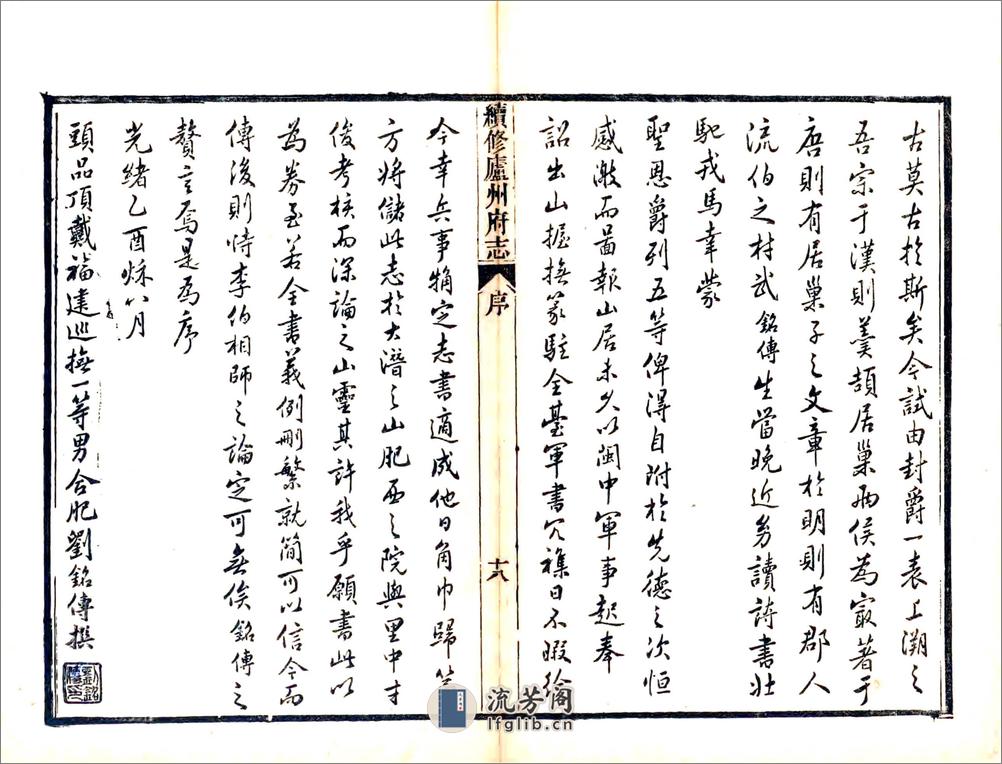 古莫古於斯矣今試由封爵一表上溯之
吾宗于漢則羹頡居巢兩侯為最著于
唐則有居巢子之文章於明則有郡人
流伯之村武銘傳生當晚近劣讀詩書壯
馳戎馬幸蒙
聖恩爵列五等俾得自附於先德之次恒
感激而啚報山居未久以閩中軍事起奉
詔出山握撫篆駐全臺軍書冗襍日不暇給
續修廬州府志
序
十八
今幸兵事犄定志書適成他日角巾歸
方將儲此志於大潛之山肥西之院與里中才
俊考核而深論之山靈其許我乎願書此以
為券至若全書義例刪繁就簡可以信今而
傳後則恃李伯相師之論定可無俟銘傳之
贅言焉是為序
光緒乙酉秌八月
頭品頂戴福建巡撫一等男合肥劉銘傳撰
流芳阁
lfglib.cn